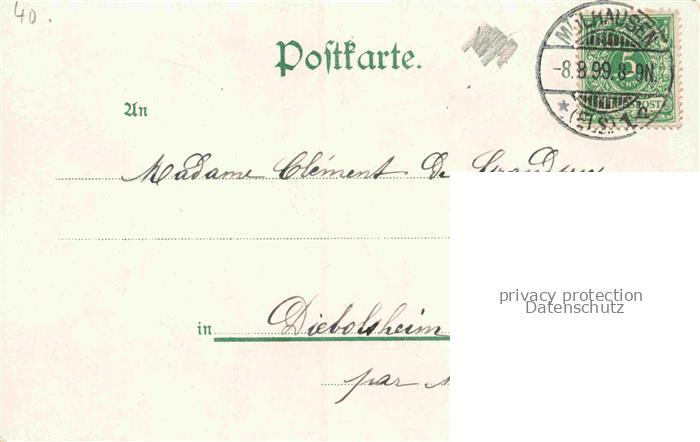 40.
Postkarte.
MÜLHAUSEN
-8.8.99.8-9N.
* (ELS) 1 a
5
An
Madame Clément de Grandpré
privacy protection
Datenschutz
in Diebolsheim
par